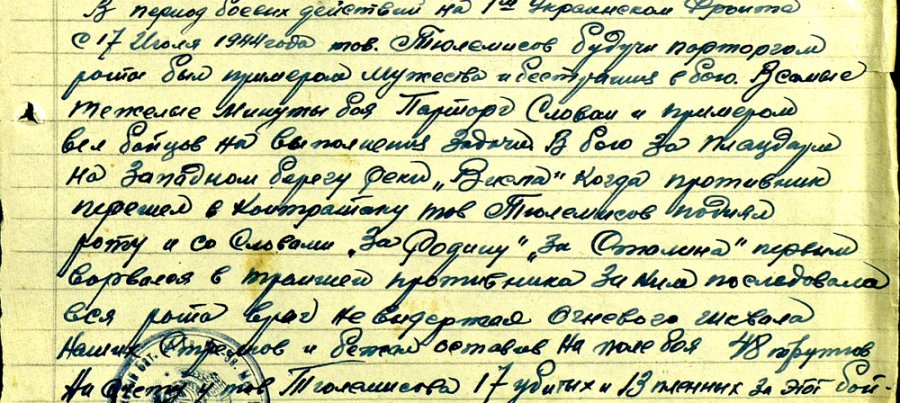 В период боевых действий на 1ом Украинском Фронта
с 17 Июля 1944 года тов. Тюлемисов будучи парторгом
роты был примером мужества и бесстрашия в бою. В самые
тежелые минуты боя Парторг Словом и примером
вел бойцов на выполнения задачи В бою за плацдарм
на западном берегу реки "Висла" Когда противник
перешел в контратаку тов Тюлемисов поднял
роту и со словами "За Родину" "За Сталина" первым
ворвался в траншеи противника За ним последовала
вся рота враг не выдержал огневого шквала
наших стрелков и бежал оставив на поле боя 48 трупов
На счету у тов Тюлемисова 17 убитых и 13 пленных за этот бой-